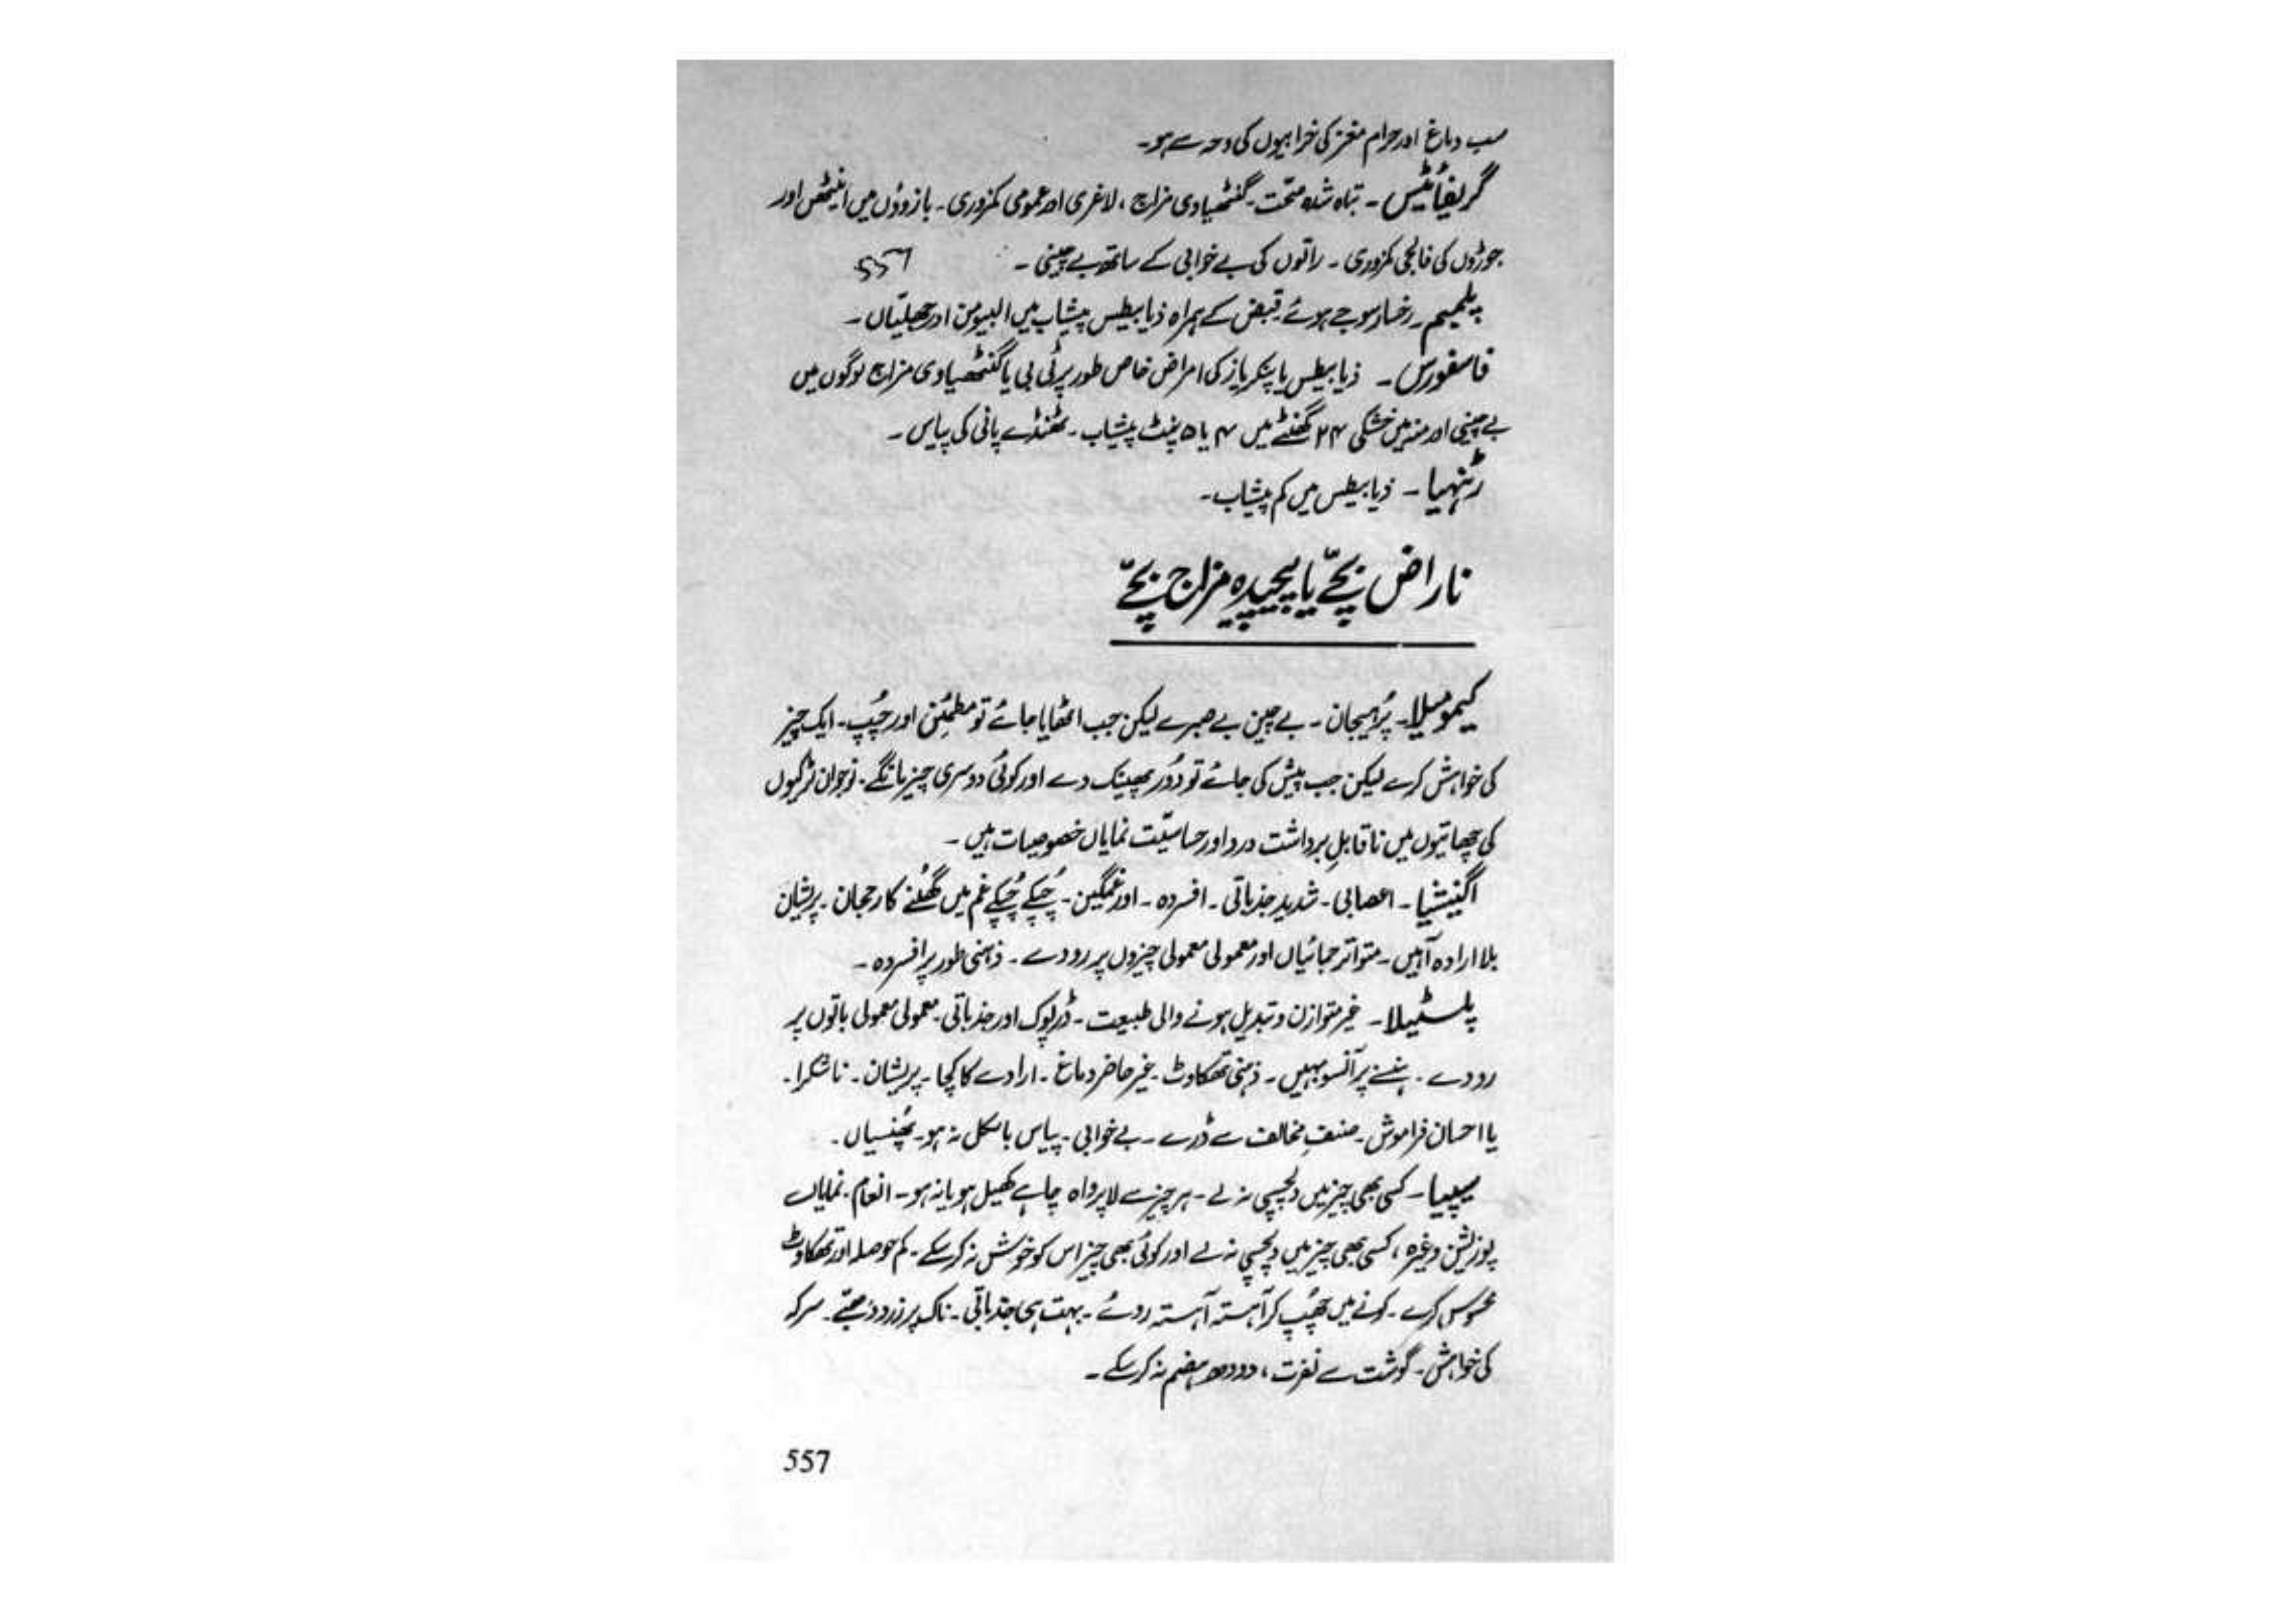 سب دماغ اور حرام مغز کی خرابیوں کی وجہ سے ہو۔
گریفائیٹس ۔ تباہ شدہ صحت ۔ گنٹھیاوی مزاج ، لاغری اور عمومی کمزوری ۔ بازوؤں میں اینٹھن اور
جوڑوں کی فالجی کمزوری ۔ راتوں کی بے خوابی کے ساتھ بے چینی ۔ 557
پلمبیم ۔ رخسار سوجے ہوئے ۔ قبض کے ہمراہ ذیابیطس پیشاب میں البیومن اور جھلیاں ۔
فاسفورس ۔ ذیابیطس یا پنکریاز کی امراض خاص طور پر ٹی بی یا گنٹھیاوی مزاج لوگوں میں
بے چینی اور منہ میں خشکی ۲۴ گھنٹے میں ۴ یا ۵ پنٹ پیشاب ۔ ٹھنڈے پانی کی پیاس ۔
رٹنہیا ۔ ذیابیطس میں کم پیشاب ۔
ناراض بچّے یا پیچیدہ مزاج بچّے
کیمومیلا ۔ پُرہیجان ۔ بے چین بے صبرے لیکن جب اٹھایا جائے تو مطمئن اور چُپ ۔ ایک چیز
کی خواہش کرے لیکن جب پیش کی جائے تو دُور پھینک دے اور کوئی دوسری چیز مانگے ۔ نوجوان لڑکیوں
کی چھاتیوں میں ناقابلِ برداشت درد اور حساسیّت نمایاں خصوصیات ہیں ۔
اگنیشیا ۔ اعصابی ۔ شدید جذباتی ۔ افسردہ ۔ اور غمگین ۔ چُپکے چُپکے غم میں گھلنے کا رجحان ۔ پریشان
بلا ارادہ آہیں ۔ متواتر جمائیاں اور معمولی معمولی چیزوں پر رو دے ۔ ذہنی طور پر افسردہ ۔
پلسٹیلا ۔ غیر متوازن و تبدیل ہونے والی طبیعت ۔ ڈرپوک اور جذباتی ۔ معمولی معمولی باتوں پر
رو دے ۔ ہنسنے پر آنسو بہیں ۔ ذہنی تھکاوٹ ۔ غیر حاضر دماغ ۔ ارادے کا کچا ۔ پریشان ۔ ناشکرا ۔
یا احسان فراموش ۔ صنفِ مخالف سے ڈرے ۔ بے خوابی ۔ پیاس بالکل نہ ہو ۔ پھُنسیاں ۔
سیپیا ۔ کسی بھی چیز میں دلچسپی نہ لے ۔ ہر چیز سے لاپرواہ چاہے کھیل ہو یا نہ ہو ۔ انعام ۔ نمایاں
پوزیشن وغیرہ ، کسی بھی چیز میں دلچسپی نہ لے اور کوئی بھی چیز اس کو خوش نہ کر سکے ۔ کم حوصلہ اور تھکاوٹ
محسوس کرے ۔ کونے میں چھُپ کر آہستہ آہستہ روئے ۔ بہت ہی جذباتی ۔ ناک پر زرد دھبّے ۔ سرکہ
کی خواہش ۔ گوشت سے نفرت ، دودھ ہضم نہ کر سکے ۔
557